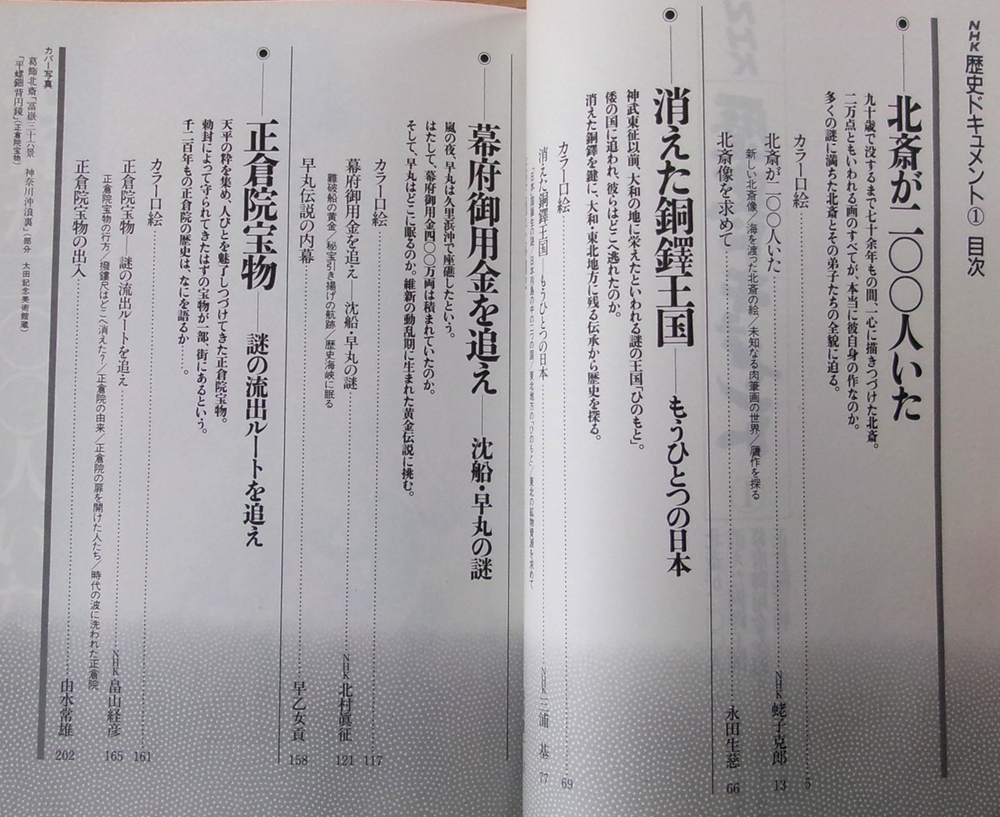 NHK歴史ドキュメント① 目次
●――北斎が二〇〇人いた
九十歳で没するまで七十余年もの間、一心に描きつづけた北斎。
二万点ともいわれる画のすべてが、本当に彼自身の作なのか。
多くの謎に満ちた北斎とその弟子たちの全貌に迫る。
カラー口絵 5
北斎が二〇〇人いた NHK 蛯子克郎 13
新しい北斎像/海を渡った北斎の絵/未知なる肉筆画の世界/贋作を探る
北斎像を求めて 永田生慈 66
●――消えた銅鐸王国――もうひとつの日本
神武東征以前、大和の地に栄えたといわれる謎の王国「ひのもと」。
倭の国に追われ、彼らはどこへ逃れたのか。
消えた銅鐸を鍵に、大和・東北地方に残る伝承から歴史を探る。
カラー口絵 69
消えた銅鐸王国――もうひとつの日本 NHK 三浦 基 77
●――幕府御用金を追え――沈船・早丸の謎
嵐の夜、早丸は久里浜沖で座礁したという。
はたして、幕府御用金四〇〇万両は積まれていたのか。
そして、早丸はどこに眠るのか。維新の動乱期に生まれた黄金伝説に挑む。
カラー口絵 117
幕府御用金を追え――沈船・早丸の謎 NHK 北村眞征 121
難破船の黄金/秘宝引き揚げの航跡/歴史海峡に眠る
早丸伝説の内幕 早乙女貢 158
●――正倉院宝物――謎の流出ルートを追え
天平の粋を集め、人びとを魅了しつづけてきた正倉院宝物。
勅封によって守られてきたはずの宝物が一部、街にあるという。
千二百年もの正倉院の歴史は、なにを語るか……。
カラー口絵 161
正倉院宝物――謎の流出ルートを追え NHK 畠山経彦 165
正倉院宝物の行方/撥鏤尺はどこへ消えた?/正倉院の由来/正倉院の扉を開けた人たち/時代の波に洗われた正倉院
正倉院宝物の出入 由水常雄 202
カバー写真
葛飾北斎「富嶽三十六景 神奈川沖浪裏」(部分 太田記念美術館蔵)
「平螺鈿背円鏡」(正倉院宝物)